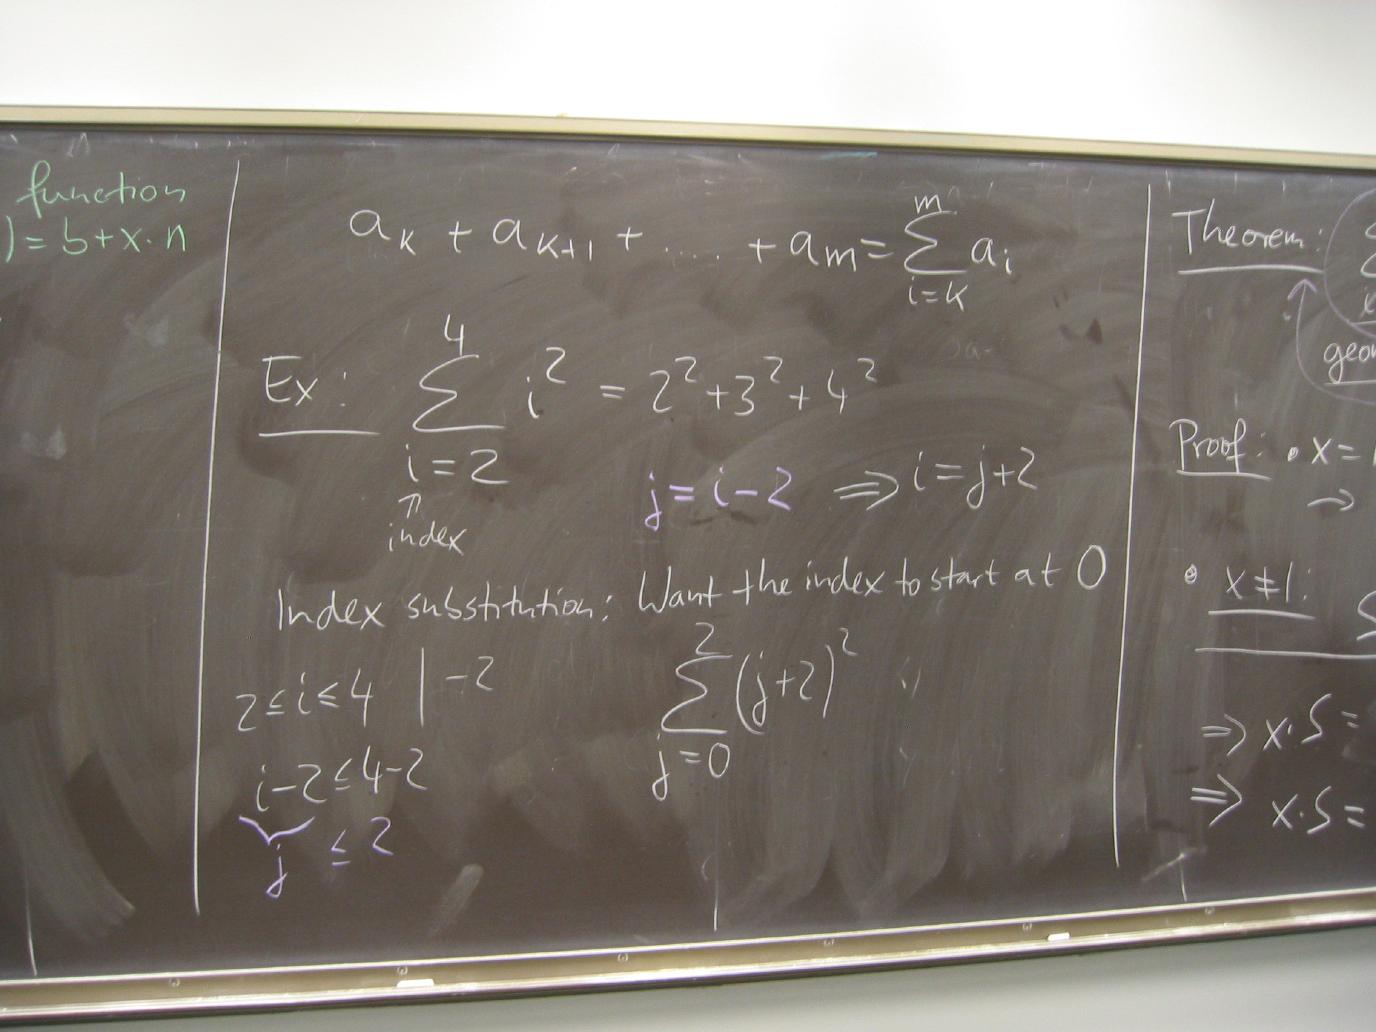 function
) = b+x·n
a_k + a_{k+1} + ..... + a_m = \sum_{i=k}^{m} a_i
Ex: \sum_{i=2}^{4} i^2 = 2^2+3^2+4^2
↑
index
j = i-2 ⇒ i = j+2
Index substitution: Want the index to start at 0
2≤i≤4 | -2
i-2≤4-2
j ≤ 2
\sum_{j=0}^{2} (j+2)^2
Theorem:
Proof: • x=
→
• x≠1:
⇒ x·S =
⇒ x·S =